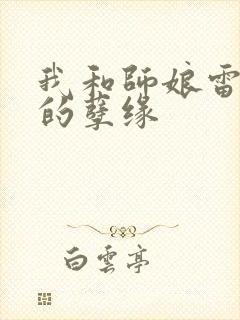 我和師娘雷
的孽缘
白雲亭